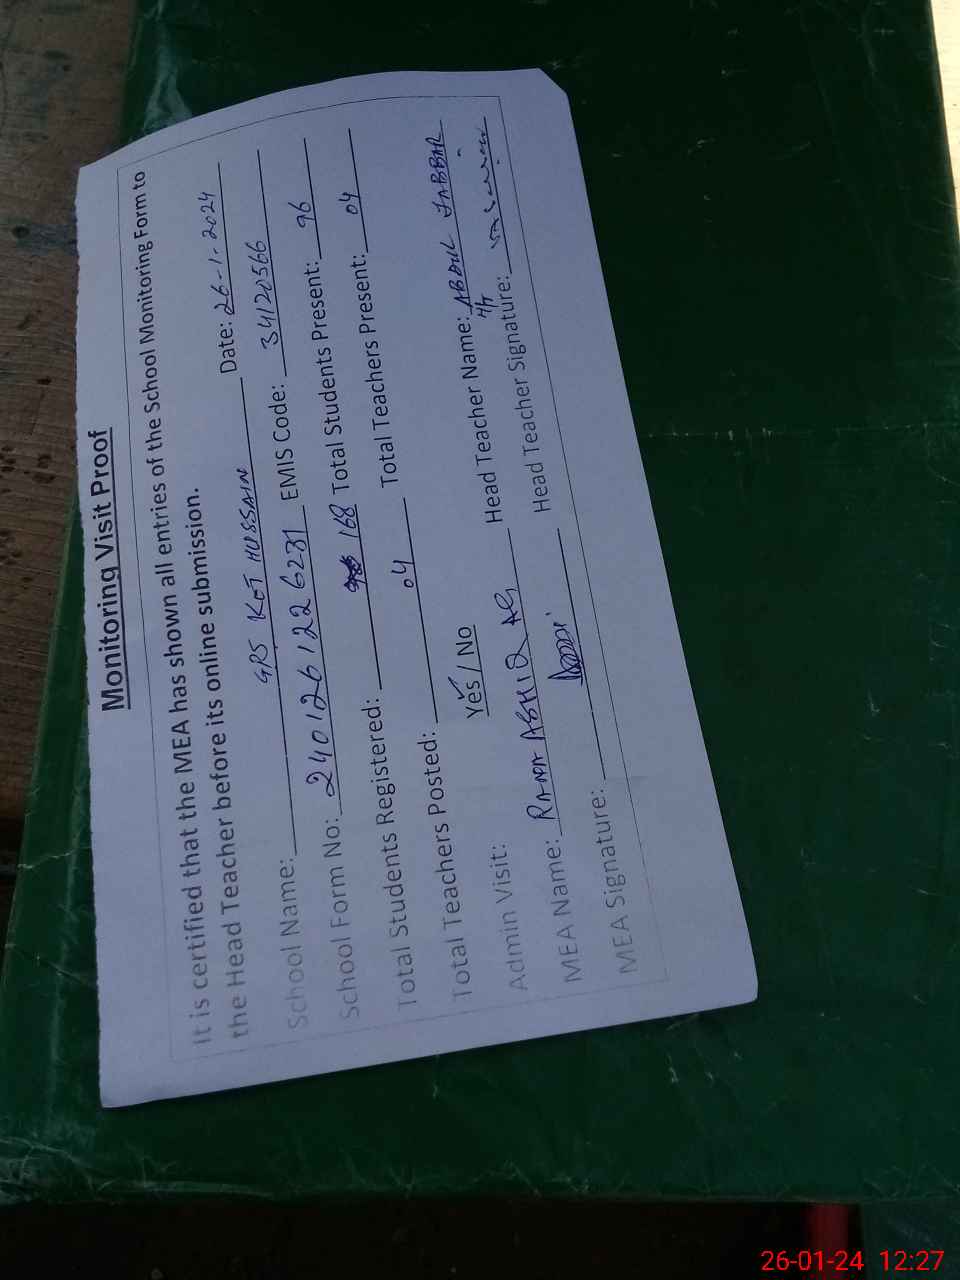 Monitoring Visit Proof
It is certified that the MEA has shown all entries of the School Monitoring Form to
the Head Teacher before its online submission.
School Name: GPS KOT HUSSAIN Date: 26-1-2024
School Form No: 240126122 6231 EMIS Code: 34120566
Total Students Registered: 168 Total Students Present: 96
Total Teachers Posted: 04 Total Teachers Present: 04
Admin Visit: Yes / No Head Teacher Name: ABDUL JABBAR
MEA Name: RANA ASHIQ Head Teacher Signature:
MEA Signature:
26-01-24 12:27